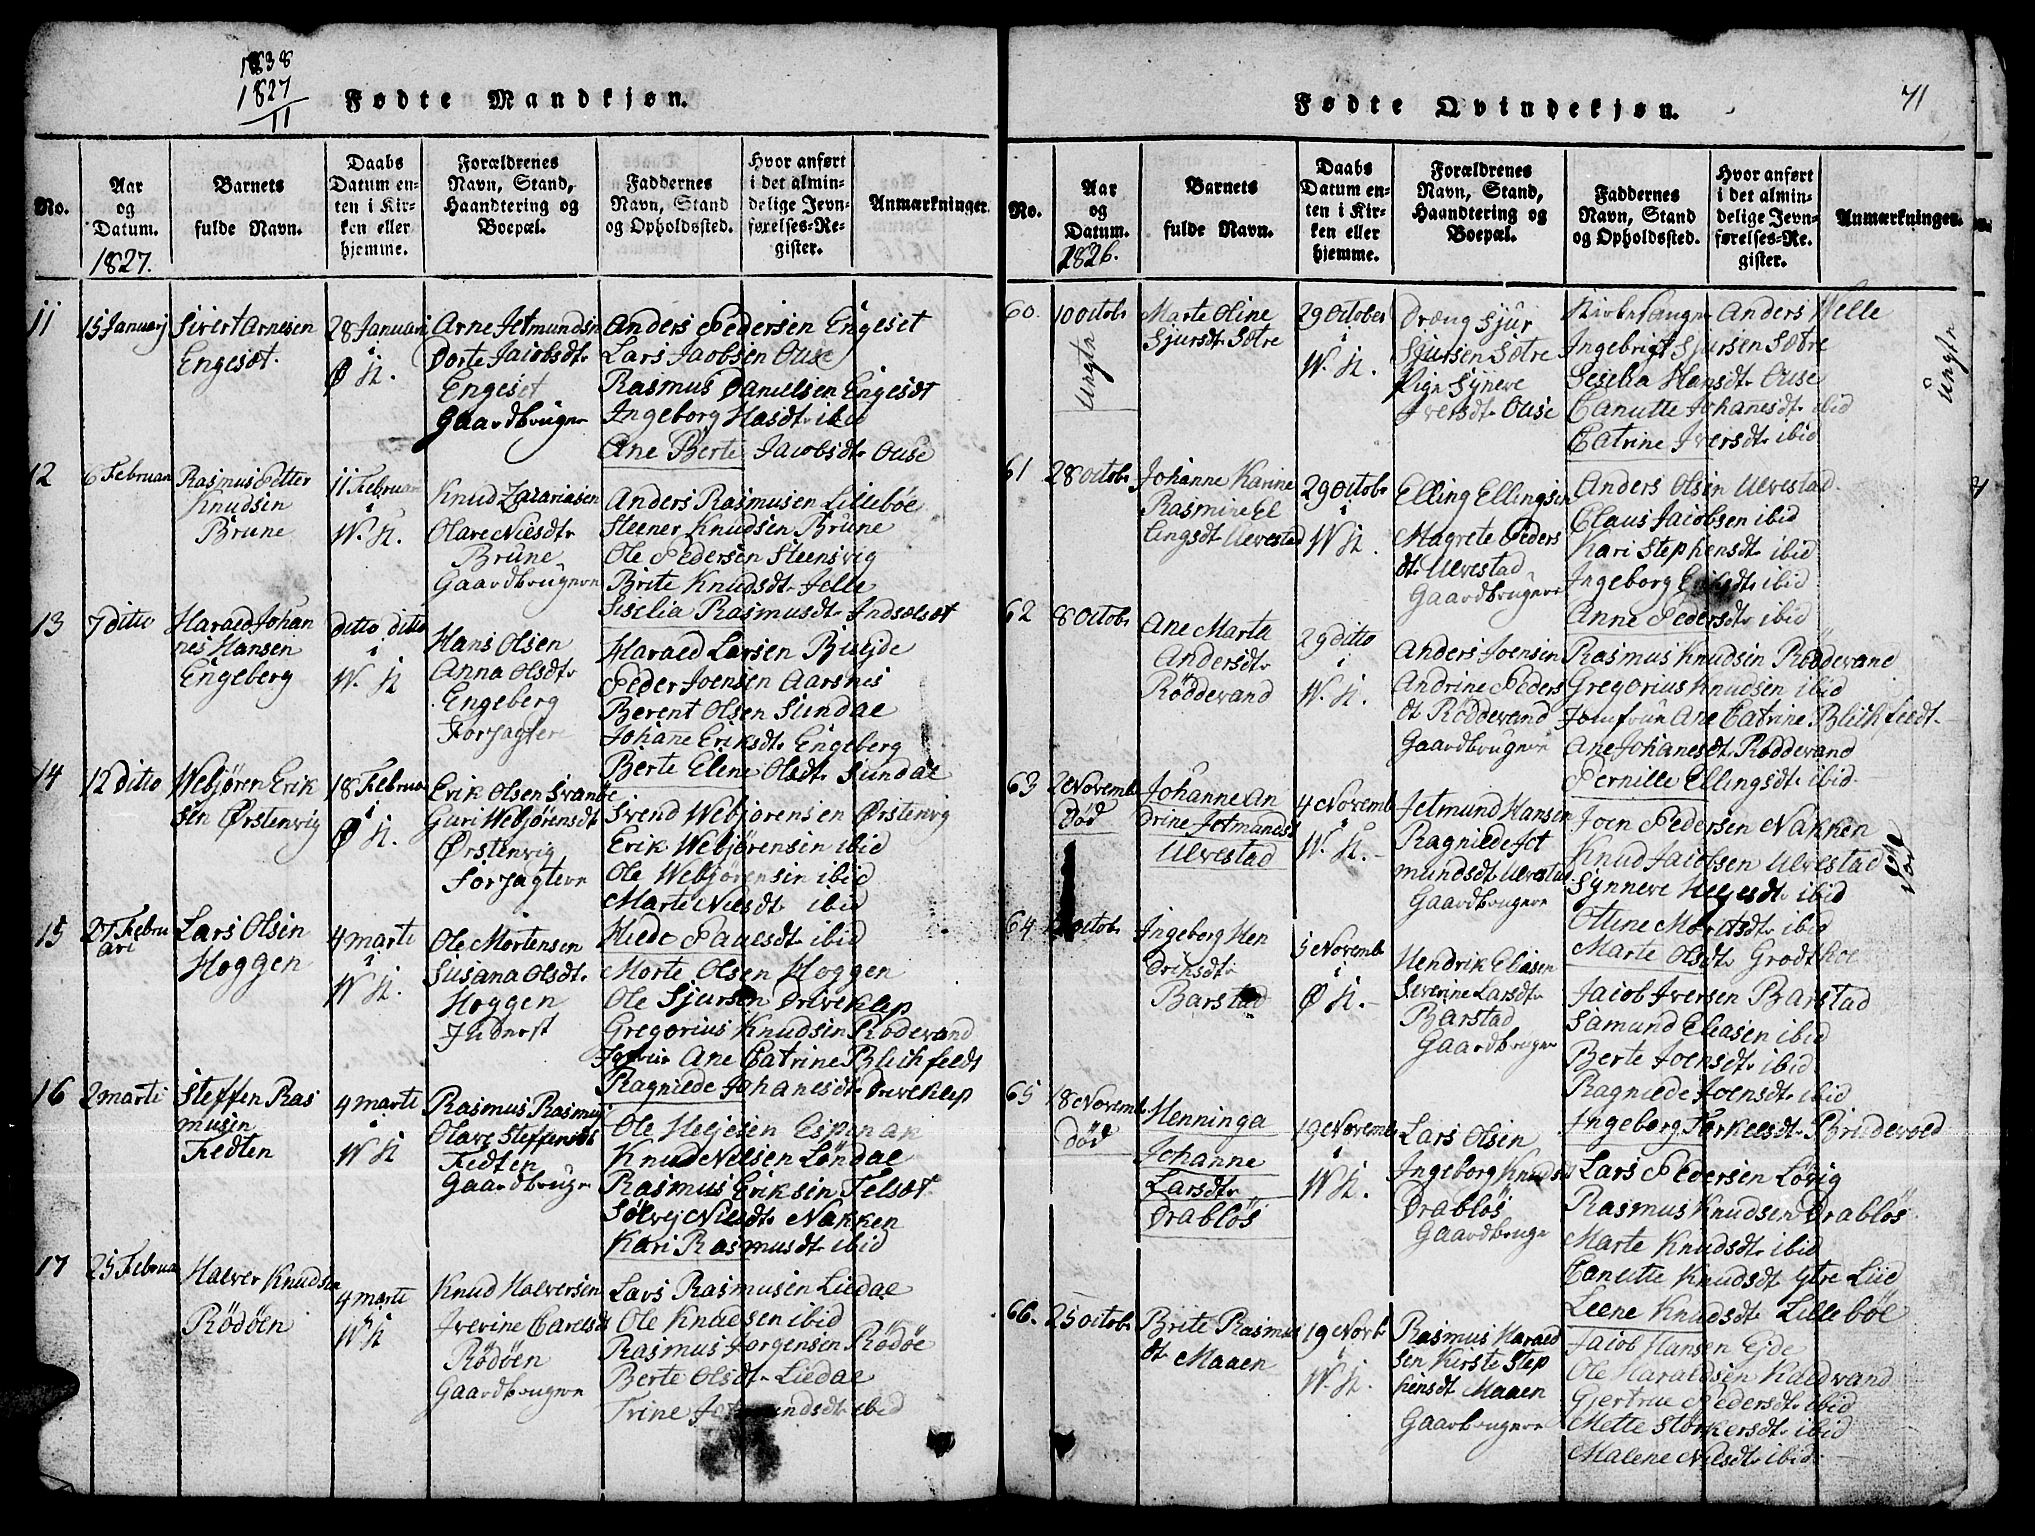 1838
1827
11
Fødte Mandkjøn.
No.
Aar
og
Datum.
1827.
Barnets
fulde Navn.
Daabs
Datum en-
ten i Kir-
ken eller
hjemme.
Forældrenes
Navn, Stand,
Haandtering og
Boepæl.
Faddernes
Navn, Stand
og Opholdssted.
Hvor anført
i det almin-
delige Jevn-
førelses-Re-
gister.
Anmærkninger.
11
15 Januarj
Sivert Arnesen
Engesøt.
28 Januari
i
Ø K.
Arne Jetmundsn
Dorte Jacobsdtr
Engeset
Gaardbruger
Anders Pedersen Engeset
Lars Jacobsen Ouse
Rasmus Danielsen Engesdt
Ingeborg Hasdtr ibid
Ane Berte Jacobsdtr Ouse
12
6 Februari
Rasmus Petter
Knudsen
Brune
11 Februari
i
W. K.
Knud Zacariasen
Olave Nielsdtr
Brune
Gaardbrugere
Anders Rasmusen Lillebøe
Steener Knudsen Brune
Ole Pedersen Steensvig
Brite Knudsdtr Jelle
Siselia Rasmusdtr Indselset
13
7 ditto
Harald Johan
nes Hansen
Engeberg
ditto ditto
i
W. K
Hans Olsen
Anna Olsdtr
Engeberg
Forpagtere
Harald Larsen Bueyde
Peder Joensen Aarsnes
Berent Olsen Sundal
Johane Eriksdtr Engeberg
Berte Elene Olsdtr Sundal
14
12 Ditto
Webjören Erik
sen Ørstenvig
18 Februar
i
Ø K.
Erik Olsen Svanbe
Guri Webjörensdt
Ørstenvig
Forpagtere
Svend Webjorensen Ørstenvig
Erik Webjörensen ibid
Ole Webjörensen ibid
Marte Nielsdtr ibid
Hilde Paulsdtr ibid
15
27 Febru
ari
Lars Olsen
Hoggen
4 marti
i
W K.
Ole Mortensen
Susana Olsdtr
Hoggen
Inderst
Morte Olsen Hoggen
Ole Sjursen Driveklep
Gregorius Knudsen Rödevand
Jomfrue Ane Catrine Blichfeldt
Ragnilde Johanesdtr Driveklep
16
2 marti
Steffen Ras
musen
Fedten
4 marti
i
W K
Rasmus Rasmus
Olave Steffensdt
Fedten
Gaardbruger
Ole Helgesen Espenak
Knud Nielsen Løndal
Rasmus Eriksen Telsøt
Sölvej Nielsdtr Nakken
Kari Rasmusdtr ibid
17
25 Februar
Halver Knudsen
Rödöen
4 marti
W K
Knud Halversen
Iverine Carelsdt
Rödöen
Gaardbrugere
Lars Rasmusen Liedal
Ole Knudsen ibid
Rasmus Jörgensen Rödöe
Berte Olsdtr Liedal
Trine Jetmundsdtr ibid
Fødte Qvindekjøn.
71
No.
Aar
og
Datum.
1826.
Barnets
fulde Navn.
Daabs
Datum en-
ten i Kir-
ken eller
hjemme.
Forældrenes
Navn, Stand,
Haandtering og
Boepæl.
Faddernes
Navn, Stand
og Opholdssted.
Hvor anført
i det almin-
delige Jevn-
førelses-Re-
gister.
Anmærkninger.
60.
10 octobr
Ungtr
Marte Oline
Sjursdtr Sætre
29 October
i
W. K.
Dreng Sjur
Sjursen Sætre
Pige Synneve
Iversdtr Ouse
Kirkesanger Anders Welle
Ingebrigt Sjursen Sætre
Seselia Hansdtr Ouse
Canutte Johanesdtr ibid
Catrine Iversdtr ibid
Ungtr
61
28 octobr
Johanne Karine
Rasmine El
lingsdt Ulvestad
29 octobr
i
W K.
Elling Ellingsen
Magrete Peders
dtr Ulvestad
Gaardbrugere
Anders Olsen Ulvestad
Claus Jacobsen ibid
Kari Stephensdtr ibid
Ingeborg Eriksdtr ibid
Anne Pedersdtr ibid
62
8 octobr
Ane Marta
Andersdtr
Röddevand
29 ditto
i
W. K.
Anders Joensen
Andrine Peders
dt Röddevand
Gaardbrugere
Rasmus Knudsen Röddevand
Gregorius Knudsen ibid
Jomfrue Ane Catrine Blichfeldt
Ane Johanesdtr Röddevand
Pernille Ellingsdtr ibid
63
2 Novemb
Død
Johanne An
drine Jetmundsdt
Ulvestad
4 Novemb
i
W. K.
Jetmund Hansen
Ragnilde Jet
mundsdt Ulvestad
Gaardbrugere
Joen Pedersen Nakken
Knud Jacobsen Ulvestad
Synneve Helgesdtr ibid
Ottine Moritsdtr ibid
Marte Olsdtr Grodthoel
64
octobr
Ingeborg Hen
driksdtr
Barstad
5 Novemb
i
Ø K.
Hendrik Eliasen
Severine Larsdtr
Barstad
Gaardbruger
Jacob Iversen Barstad
Samund Eliasen ibid
Berte Joensdtr ibid
Ragnilde Joensdtr ibid
Ingeborg Torkelsdtr Bridevold
65
18 Novemb
död
Henninga
Johanne
Larsdtr
Drablös
19 Novemb
i
W K.
Lars Olsen
Ingeborg Knudsd
Drablös
Gaardbruge
Lars Pedersen Lövig
Rasmus Knudsen Drablös
Marte Knudsdtr ibid
Canutte Knudsdt Ytre Lied
Leene Knudsdtr Lillebøe
66.
25 octobr
Brite Rasmus
dtr Maaen
19 Novbr
i
W. K.
Rasmus Harald
sen Kirste Step
hensdt Maaen
Gaarbrugere
Jacob Hansen Ejde
Ole Haraldsen Kaldvand
Gjertrue Pedersdtr ibid
Mette Storkersdtr ibid
Malene Nielsdtr ibid